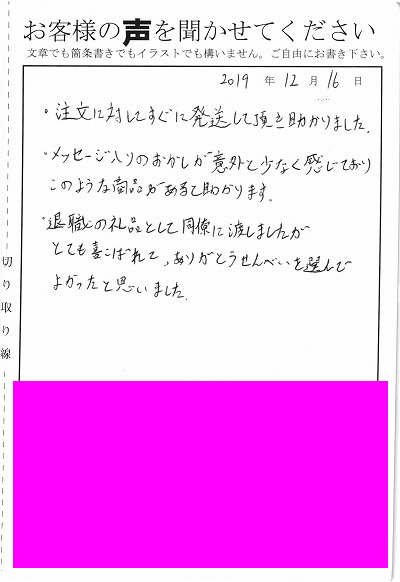 お客様の声を聞かせてください
文章でも箇条書きでもイラストでも構いません。ご自由にお書き下さい。
2019 年 12 月 16 日
・注文に対してすぐに発送して頂き助かりました。
・メッセージ入りのおかしが意外と少なく感じており
このような商品があると助かります。
・退職の礼品として同僚に渡しましたが
とても喜こばれて、ありがとうせんべいを選んで
よかったと思いました。
切り取り線